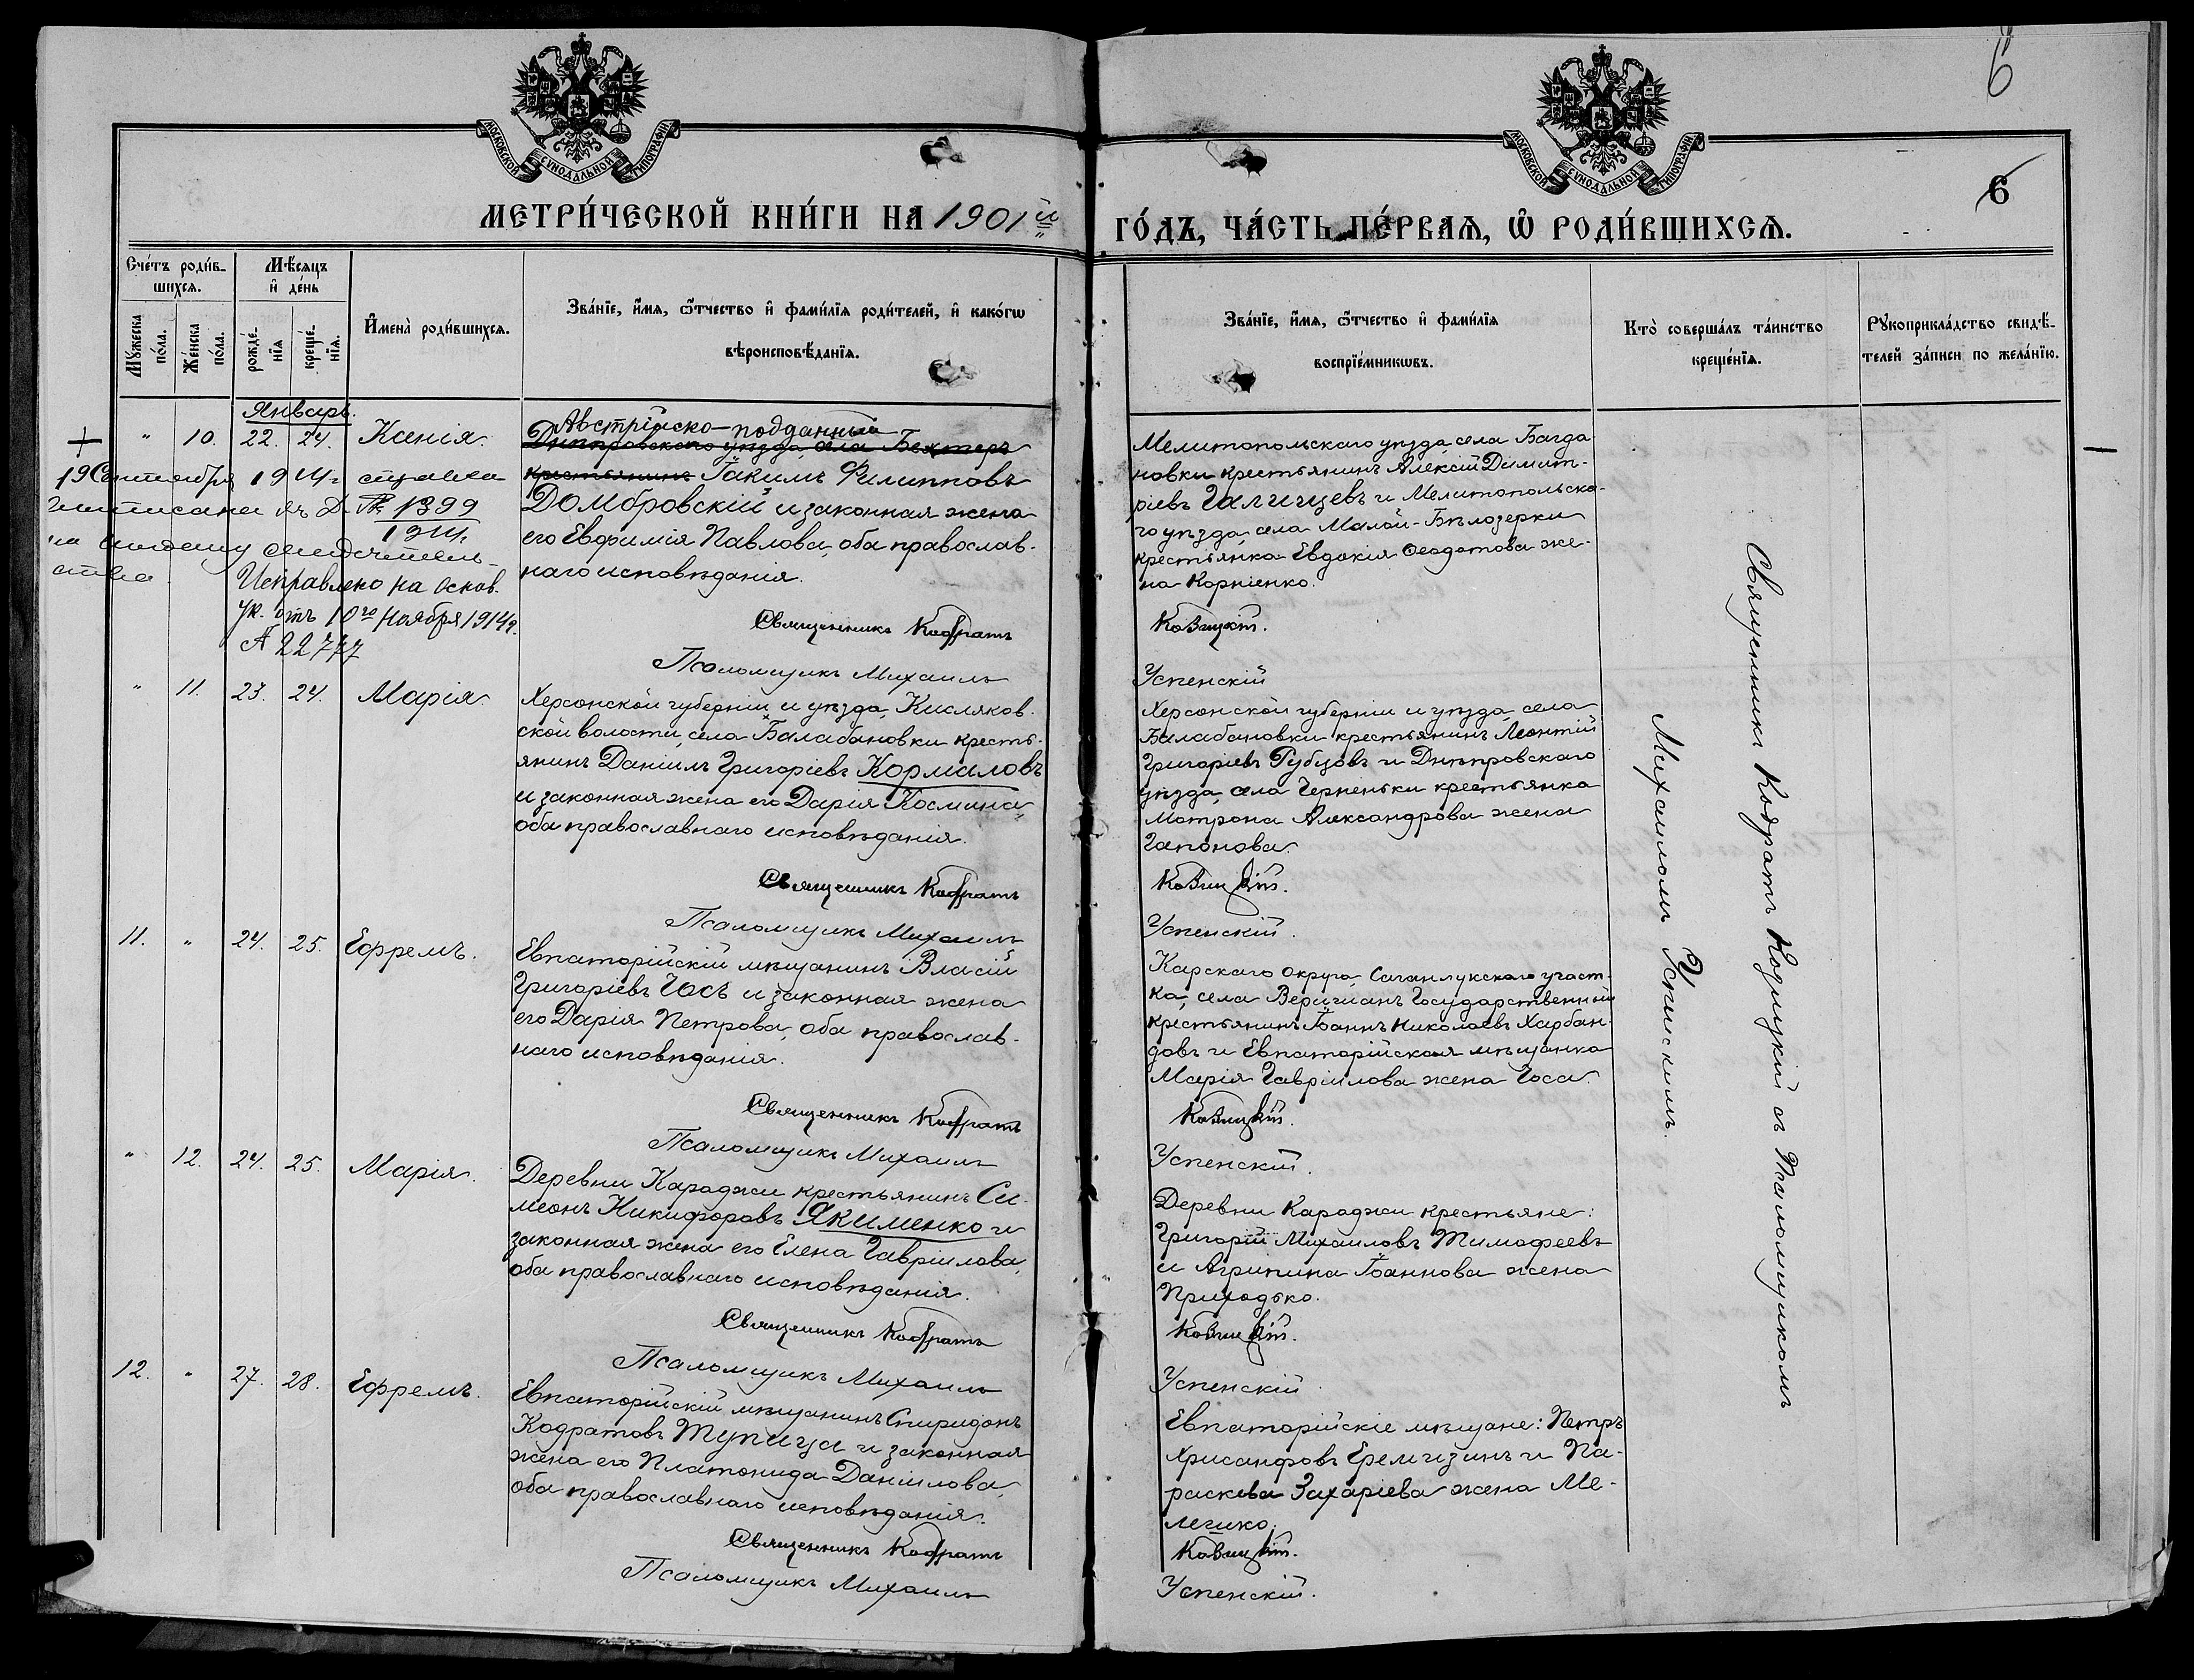 6
МОСКОВСКОЙ СѴНОДАЛЬНОЙ ТИПОГРАФІИ
МОСКОВСКОЙ СѴНОДАЛЬНОЙ ТИПОГРАФІИ
6
МЕТРИ́ЧЕСКОЙ КНИ́ГИ НА 1901й
ГО́ДЪ, ЧА́СТЬ ПЕ́РВАѦ, Ѡ҆ РОДИ́ВШИХСѦ.
Сче́тъ роди́в-
шихся.
Мѣ́сяцъ
и҆ де́нь
Мꙋ́жеска по́ла.
Же́нска по́ла.
рожде́-
нїя
креще́-
нїя.
И҆мена̀ роди́вшихся.
Зва́нїе, и҆́мя, ѻ҆́тчество и҆ фами́лїя роди́телей, и҆ како́гѡ
вѣроисповѣ́данїя.
Зва́нїе, и҆́мя, ѻ҆́тчество и҆ фами́лїя
воспрїе́мникѡвъ.
Кто̀ соверша́лъ та́инство
креще́нїя.
Рꙋкоприкла́дство свидѣ́-
телей за́писи по жела́нїю.
Январь.
" 10. 22. 24. Ксенія.
Австрійско-подданный
Днѣпровскаго уѣзда, села Бехтеръ
крестьянинъ Іакимъ Филипповъ
Домбровскій и законная жена
его Евфимія Павлова, оба православ-
наго исповѣданія.
Священникъ Кодратъ
Псаломщикъ Михаилъ
19 Сентября 1914г.
№ 1399
1914
Исправлено на основ.
ук. отъ 10го Ноября 1914г.
№ 22777
Мелитопольскаго уѣзда, села Багда
новки крестьянинъ Алексій Димит-
ріевъ Галичцевъ и Мелитопольска-
го уѣзда, села Малой-Бѣлозерки
крестьянка Евдокія Ѳеодотова же-
на Корніенко.
Козицкій.
Успенскій
" 11. 23. 24. Марія.
Херсонской губерніи и уѣзда, Кисляков-
ской волости, села Балабановки кресть-
янинъ Даніилъ Григоріевъ Кормиловъ
и законная жена его Дарія Космина,
оба православнаго исповѣданія.
Священникъ Кодратъ
Псаломщикъ Михаилъ
Херсонской губерніи и уѣзда, села
Балабановки крестьянинъ Леонтій
Григоріевъ Рубцовъ и Днѣпровскаго
уѣзда, села Черненьки крестьянка
Матрона Александрова жена
Гапонова.
Козицкій.
Успенскій.
11. " 24. 25. Ефремъ.
Евпаторійскій мѣщанинъ Власій
Григоріевъ Гось и законная жена
его Дарія Петрова, оба православ-
наго исповѣданія.
Священникъ Кодратъ
Псаломщикъ Михаилъ
Карскаго округа, Саганлукскаго участ-
ка, села Веришанъ Государственный
крестьянинъ Іоаннъ Николаевъ Харбан-
довъ и Евпаторійская мѣщанка
Марія Гавріилова жена Госа.
Козицкій.
Успенскій.
" 12. 24. 25. Марія.
Деревни Караджи крестьянинъ Си-
меонъ Никифоровъ Якименко и
законная жена его Елена Гавріилова,
оба православнаго исповѣданія.
Священникъ Кодратъ
Псаломщикъ Михаилъ
Деревни Караджи крестьяне:
Григорій Михаиловъ Тимофеевъ
и Агрипина Іоаннова жена
Приходько.
Козицкій.
Успенскій.
12. " 27. 28. Ефремъ.
Евпаторійскій мѣщанинъ Спиридонъ
Кодратовъ Тупица и законная
жена его Платонида Даніилова,
оба православнаго исповѣданія.
Священникъ Кодратъ
Псаломщикъ Михаилъ
Евпаторійскіе мѣщане: Петръ
Хрисанфовъ Еремизинъ и Па-
раскева Захаріева жена Ме-
лешко.
Козицкій.
Успенскій.
Священникъ Кодратъ Козицкій съ Псаломщикомъ
Михаиломъ Успенскимъ.